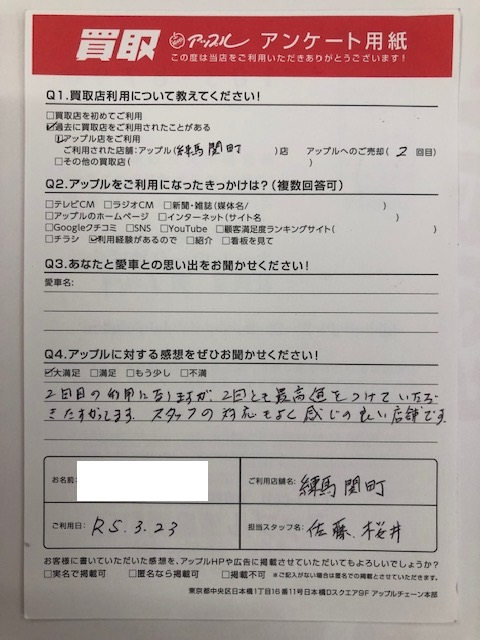 買取 アップル アンケート用紙
この度は当店をご利用いただきありがとうございます!
Q1.買取店利用について教えてください!
□買取店を初めてご利用
☑過去に買取店をご利用されたことがある
☑アップル店をご利用
ご利用された店舗:アップル(練馬関町)店 アップルへのご売却(2回目)
□その他の買取店( )
Q2.アップルをご利用になったきっかけは?(複数回答可)
□テレビCM □ラジオCM □新聞・雑誌(媒体名/ )
□アップルのホームページ □インターネット(サイト名 )
□Googleクチコミ □SNS □YouTube □顧客満足度ランキングサイト( )
□チラシ ☑利用経験があるので □紹介 □看板を見て
Q3.あなたと愛車との思い出をお聞かせください!
愛車名:
Q4.アップルに対する感想をぜひお聞かせください!
☑大満足 □満足 □もう少し □不満
2回目の利用になりますが、2回とも最高値をつけていただ
きたすかります。スタッフの対応もよく感じの良い店舗です。
お名前: ご利用店舗名: 練馬関町
ご利用日: R5.3.23 担当スタッフ名: 佐藤、桜井
お客様に書いていただいた感想を、アップルHPや広告に掲載させていただいてもよろしいでしょうか?
□実名で掲載可 □匿名なら掲載可 □掲載不可 ※ご記入がない場合は匿名での掲載とさせていただきます。
東京都中央区日本橋1丁目16番11号日本橋Dスクエア9F アップルチェーン本部